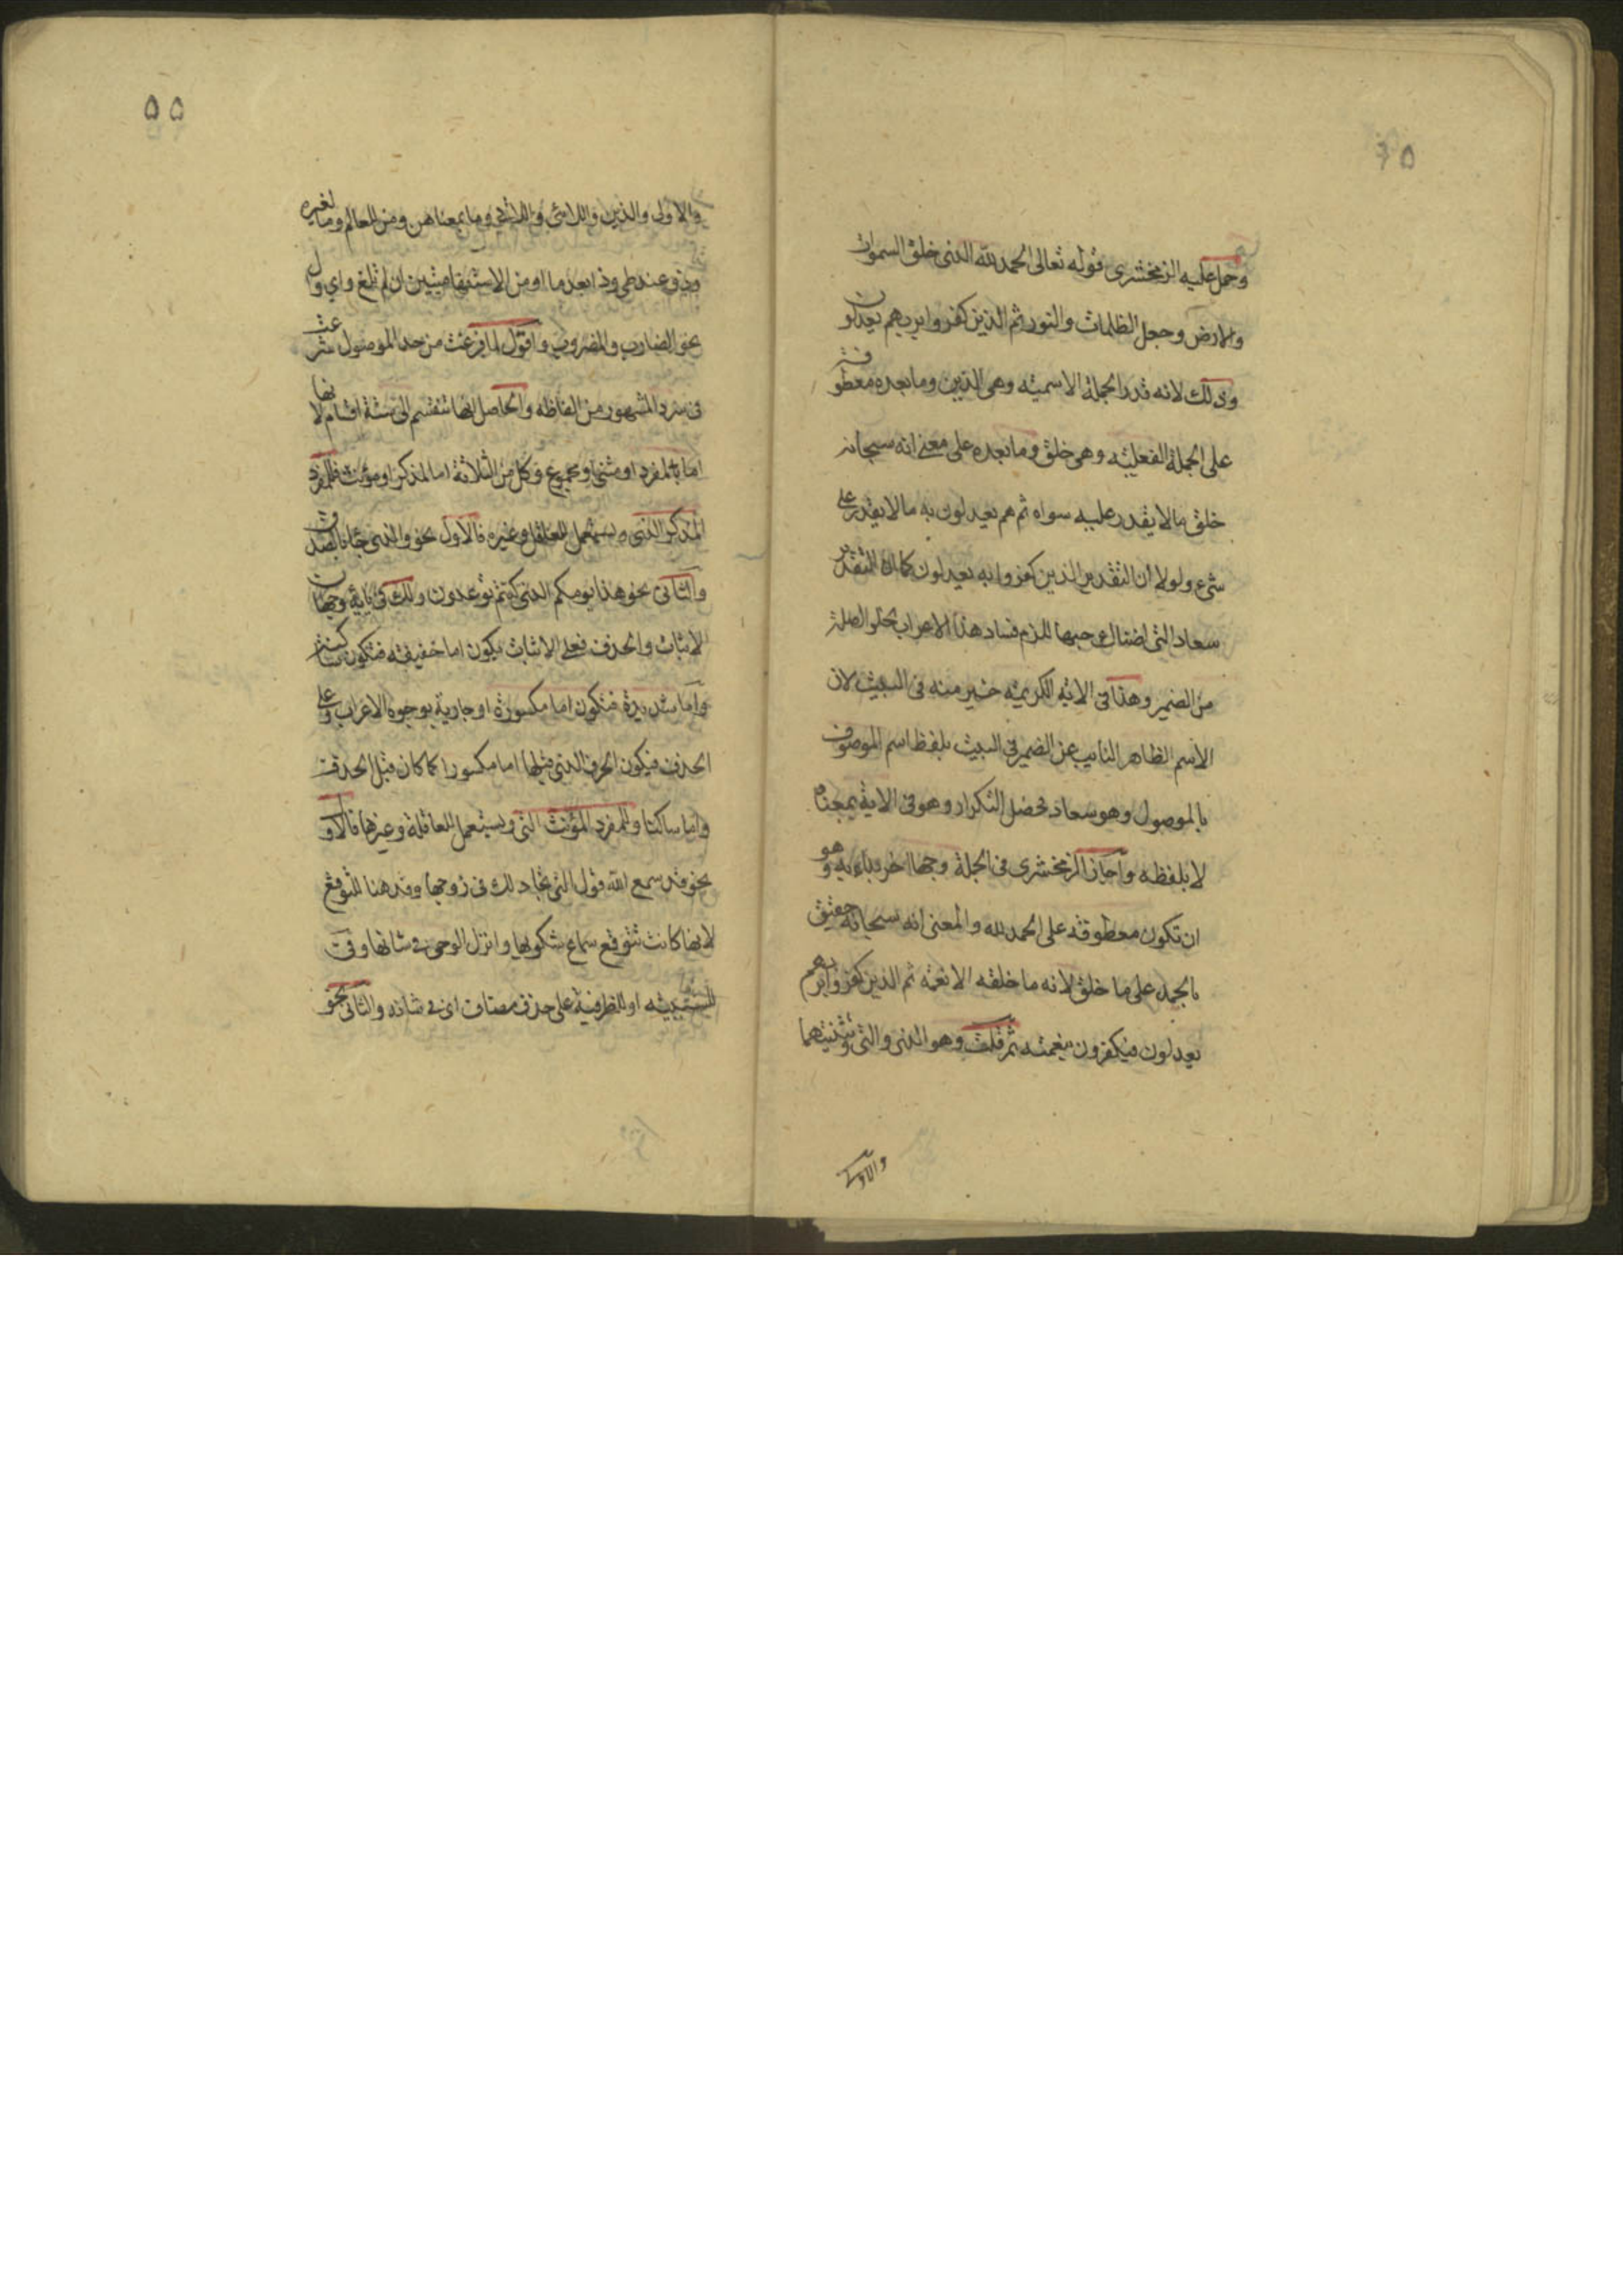 وحمل عليه الزمخشري قوله تعالى الحمد لله الذي خلق السموات
والارض وجعل الظلمات والنور ثم الذين كفروا بربهم يعدلون
وذلك لانه قدر الجملة الاسمية وهي الذين وما بعده معطوفة
على الجملة الفعلية وهي خلق وما بعده على معنى انه سبحانه
خلق ما لا يقدر عليه سواه ثم هم يعدلون به ما لا يقدر على
شيء ولولا ان التقدير ثم الذين كفروا به يعدلون كما ان التقدير
سعاد التي اضناك حبها للزم فساد هذا الاعراب لخلو الصلة
من الضمير وهذا في الاية الكريمة خير منه في البيت لان
الاسم الظاهر النايب عن الضمير في البيت بلفظ اسم الموصوف
بالموصول وهو سعاد فحصل التكرار وهو في الاية بمعناه
لا بلفظه واجاز الزمخشري في الجملة وجها اخر بداء به وهو
ان تكون معطوفة على الحمد لله والمعنى انه سبحانه حقيق
بالحمد على ما خلق لانه ما خلقه الا نعمة ثم الذين كفروا بربهم
يعدلون فيكفرون بنعمته ثم قلت وهو الذي والتي وتثنيتهما
والاولى
٥٥
والاولى والذين واللائي واللاتي وما بمعناهن ومن للعالم وما لغيره
وذو عند طي وذا بعد ما او من الاستفهاميتين ان لم تلغ واي وال
نحو الضارب والمضروب واقول لما فرغت من حد الموصول شرعت
في سرد المشهور من الفاظه والحاصل انها تنقسم الى ستة اقسام لانها
اما لمفرد او مثنى او مجموع وكل من الثلاثة اما لمذكر او مؤنث فللمفرد
المذكر الذي ويستعمل للعاقل وغيره فالاول نحو والذي جا بالصدق
والثاني نحو هذا يومكم الذي كنتم توعدون ولك في يايه وجهان
الاثبات والحذف فعلى الاثبات يكون اما خفيفة فتكون ساكنة
واما شديدة فتكون اما مكسورة او جارية بوجوه الاعراب وعلى
الحذف فيكون الحرف الذي قبلها اما مكسورا كما كان قبل الحذف
واما ساكنا وللمفرد المؤنث التي ويستعمل للعاقلة وغيرها فالاو
نحو قد سمع الله قول التي تجادلك في زوجها وقد هنا للتوقع
لانها كانت تتوقع سماع شكويها وانزل الوحي في شانها وفي
للسببية او للظرفية على حذف مضاف اي في شانه والثاني نحو